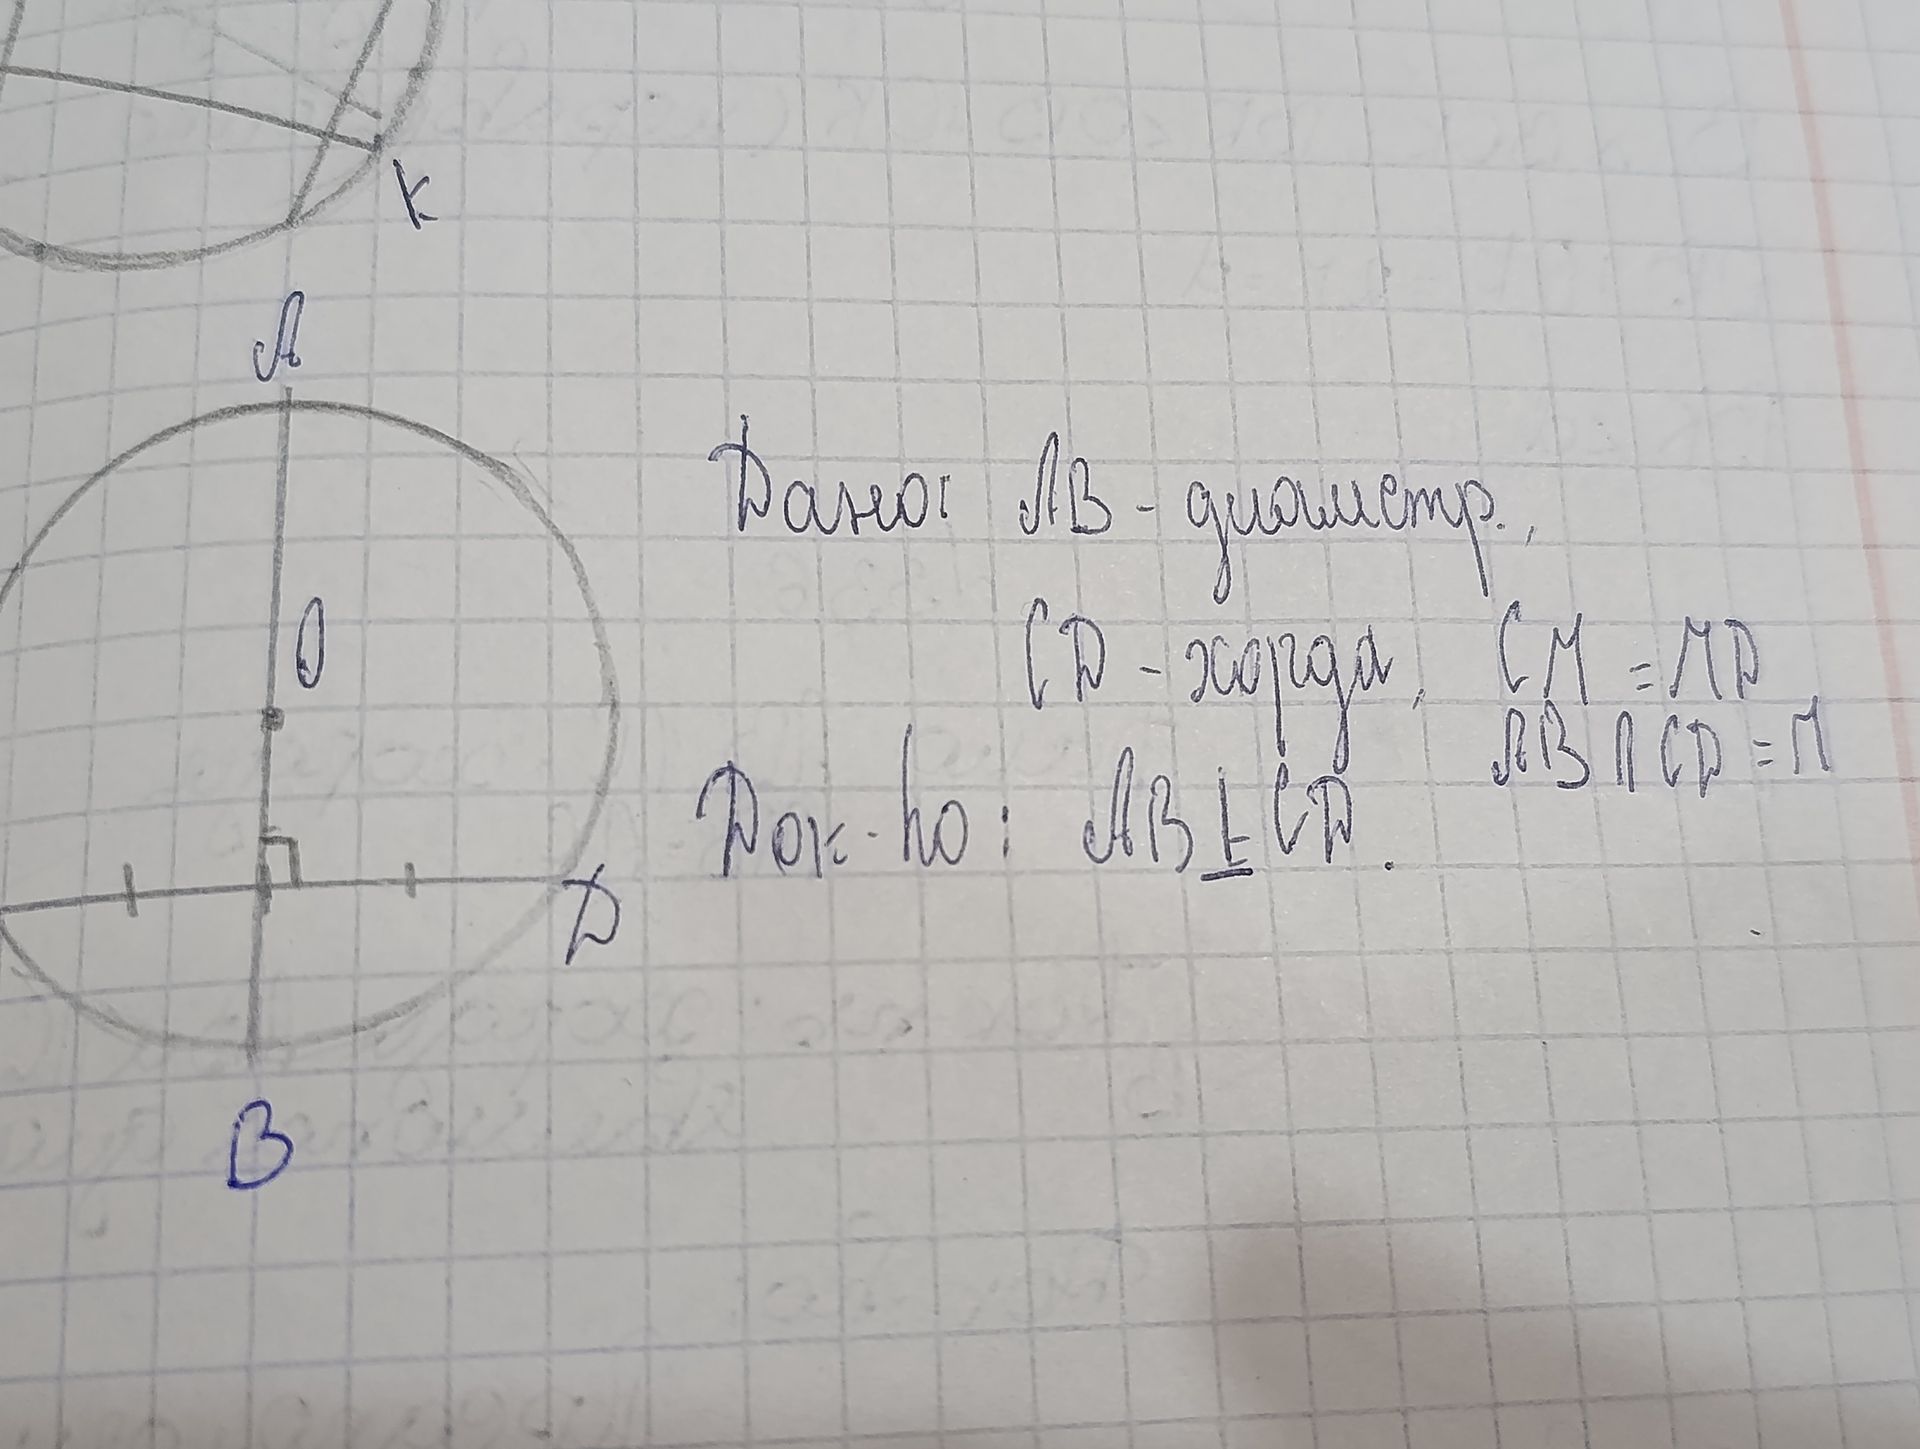 K
A
Дано: AB - диаметр.,
O
CD - хорда, CM = MD
AB ∩ CD = M
Док-во: AB ⊥ CD.
D
B